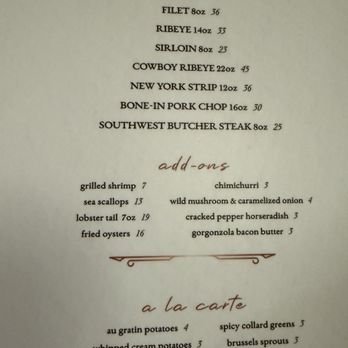 FILET 8oz 36
RIBEYE 14oz 33
SIRLOIN 8oz 23
COWBOY RIBEYE 22oz 45
NEW YORK STRIP 12oz 36
BONE-IN PORK CHOP 16oz 30
SOUTHWEST BUTCHER STEAK 8oz 25
add-ons
grilled shrimp 7
sea scallops 15
lobster tail 7oz 19
fried oysters 16
chimichurri 3
wild mushroom & caramelized onion 4
cracked pepper horseradish 3
gorgonzola bacon butter 3
a la carte
au gratin potatoes 4
whipped cream potatoes 3
spicy collard greens 3
brussels sprouts 3